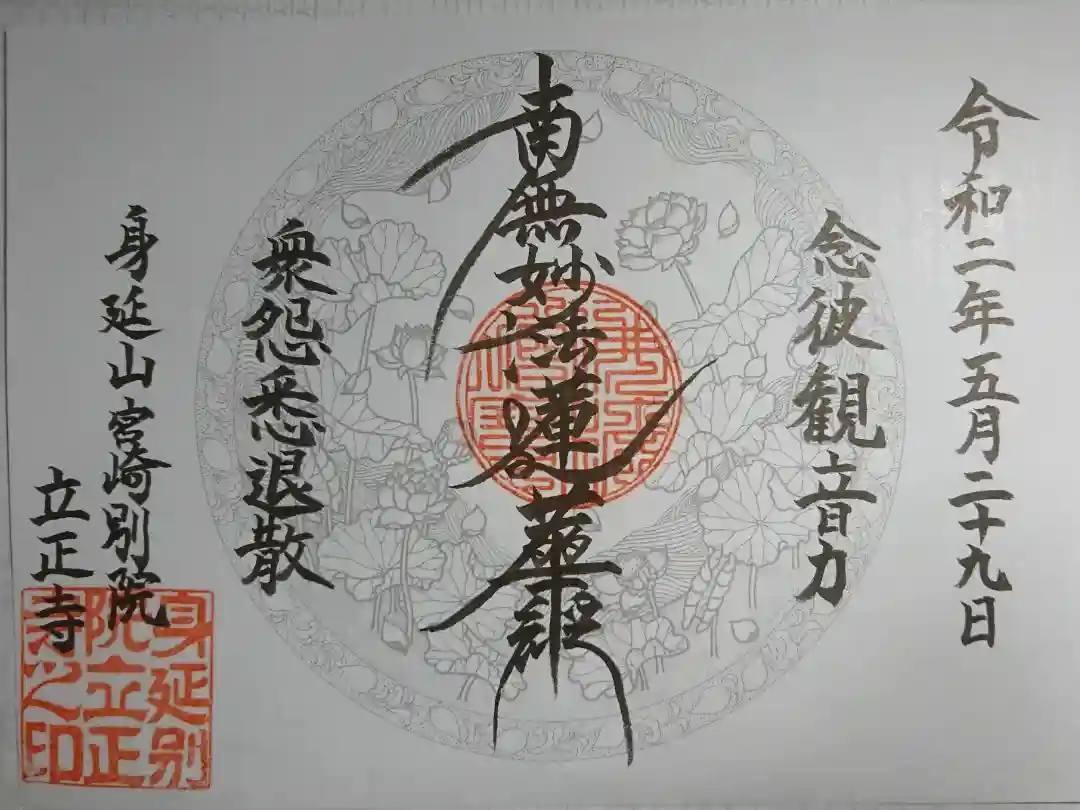 令和二年五月二十九日
念彼観音力
南無妙法蓮華経
衆怨悉退散
身延山宮崎別院
立正寺
身延別
院立正
寺之印